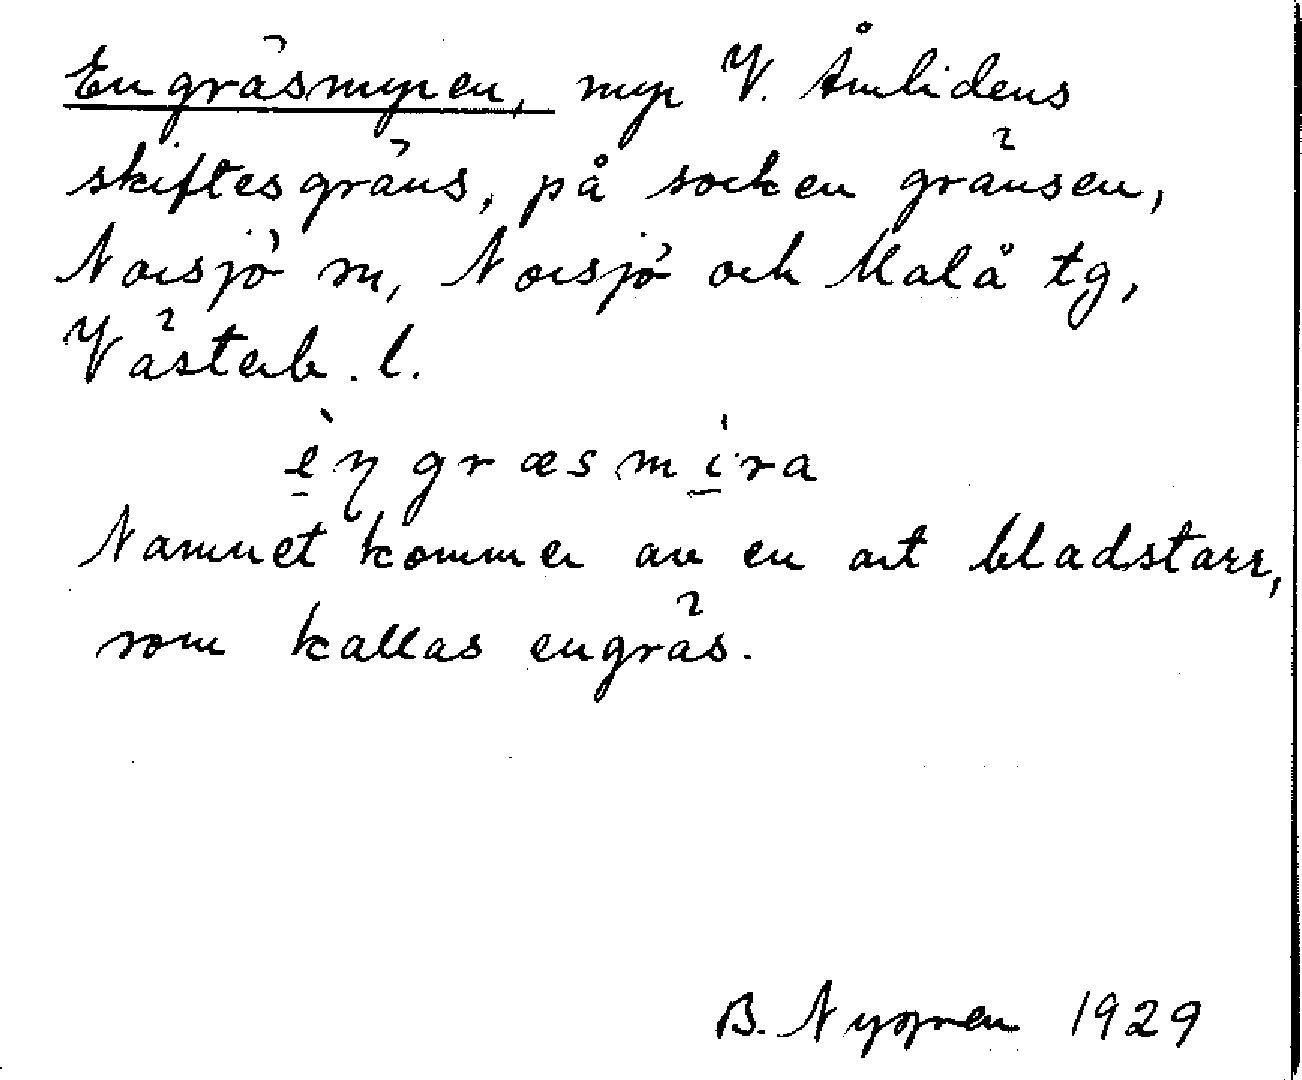 Engräsmyren, myr V. Åmlidens
skiftesgräns, på sockengränsen,
Norsjö sn, Norsjö och Malå tg,
Västerb. l.
èŋgræsmira
Namnet kommer av en art bladstarr,
som kallas engräs.
B. Nygren 1929